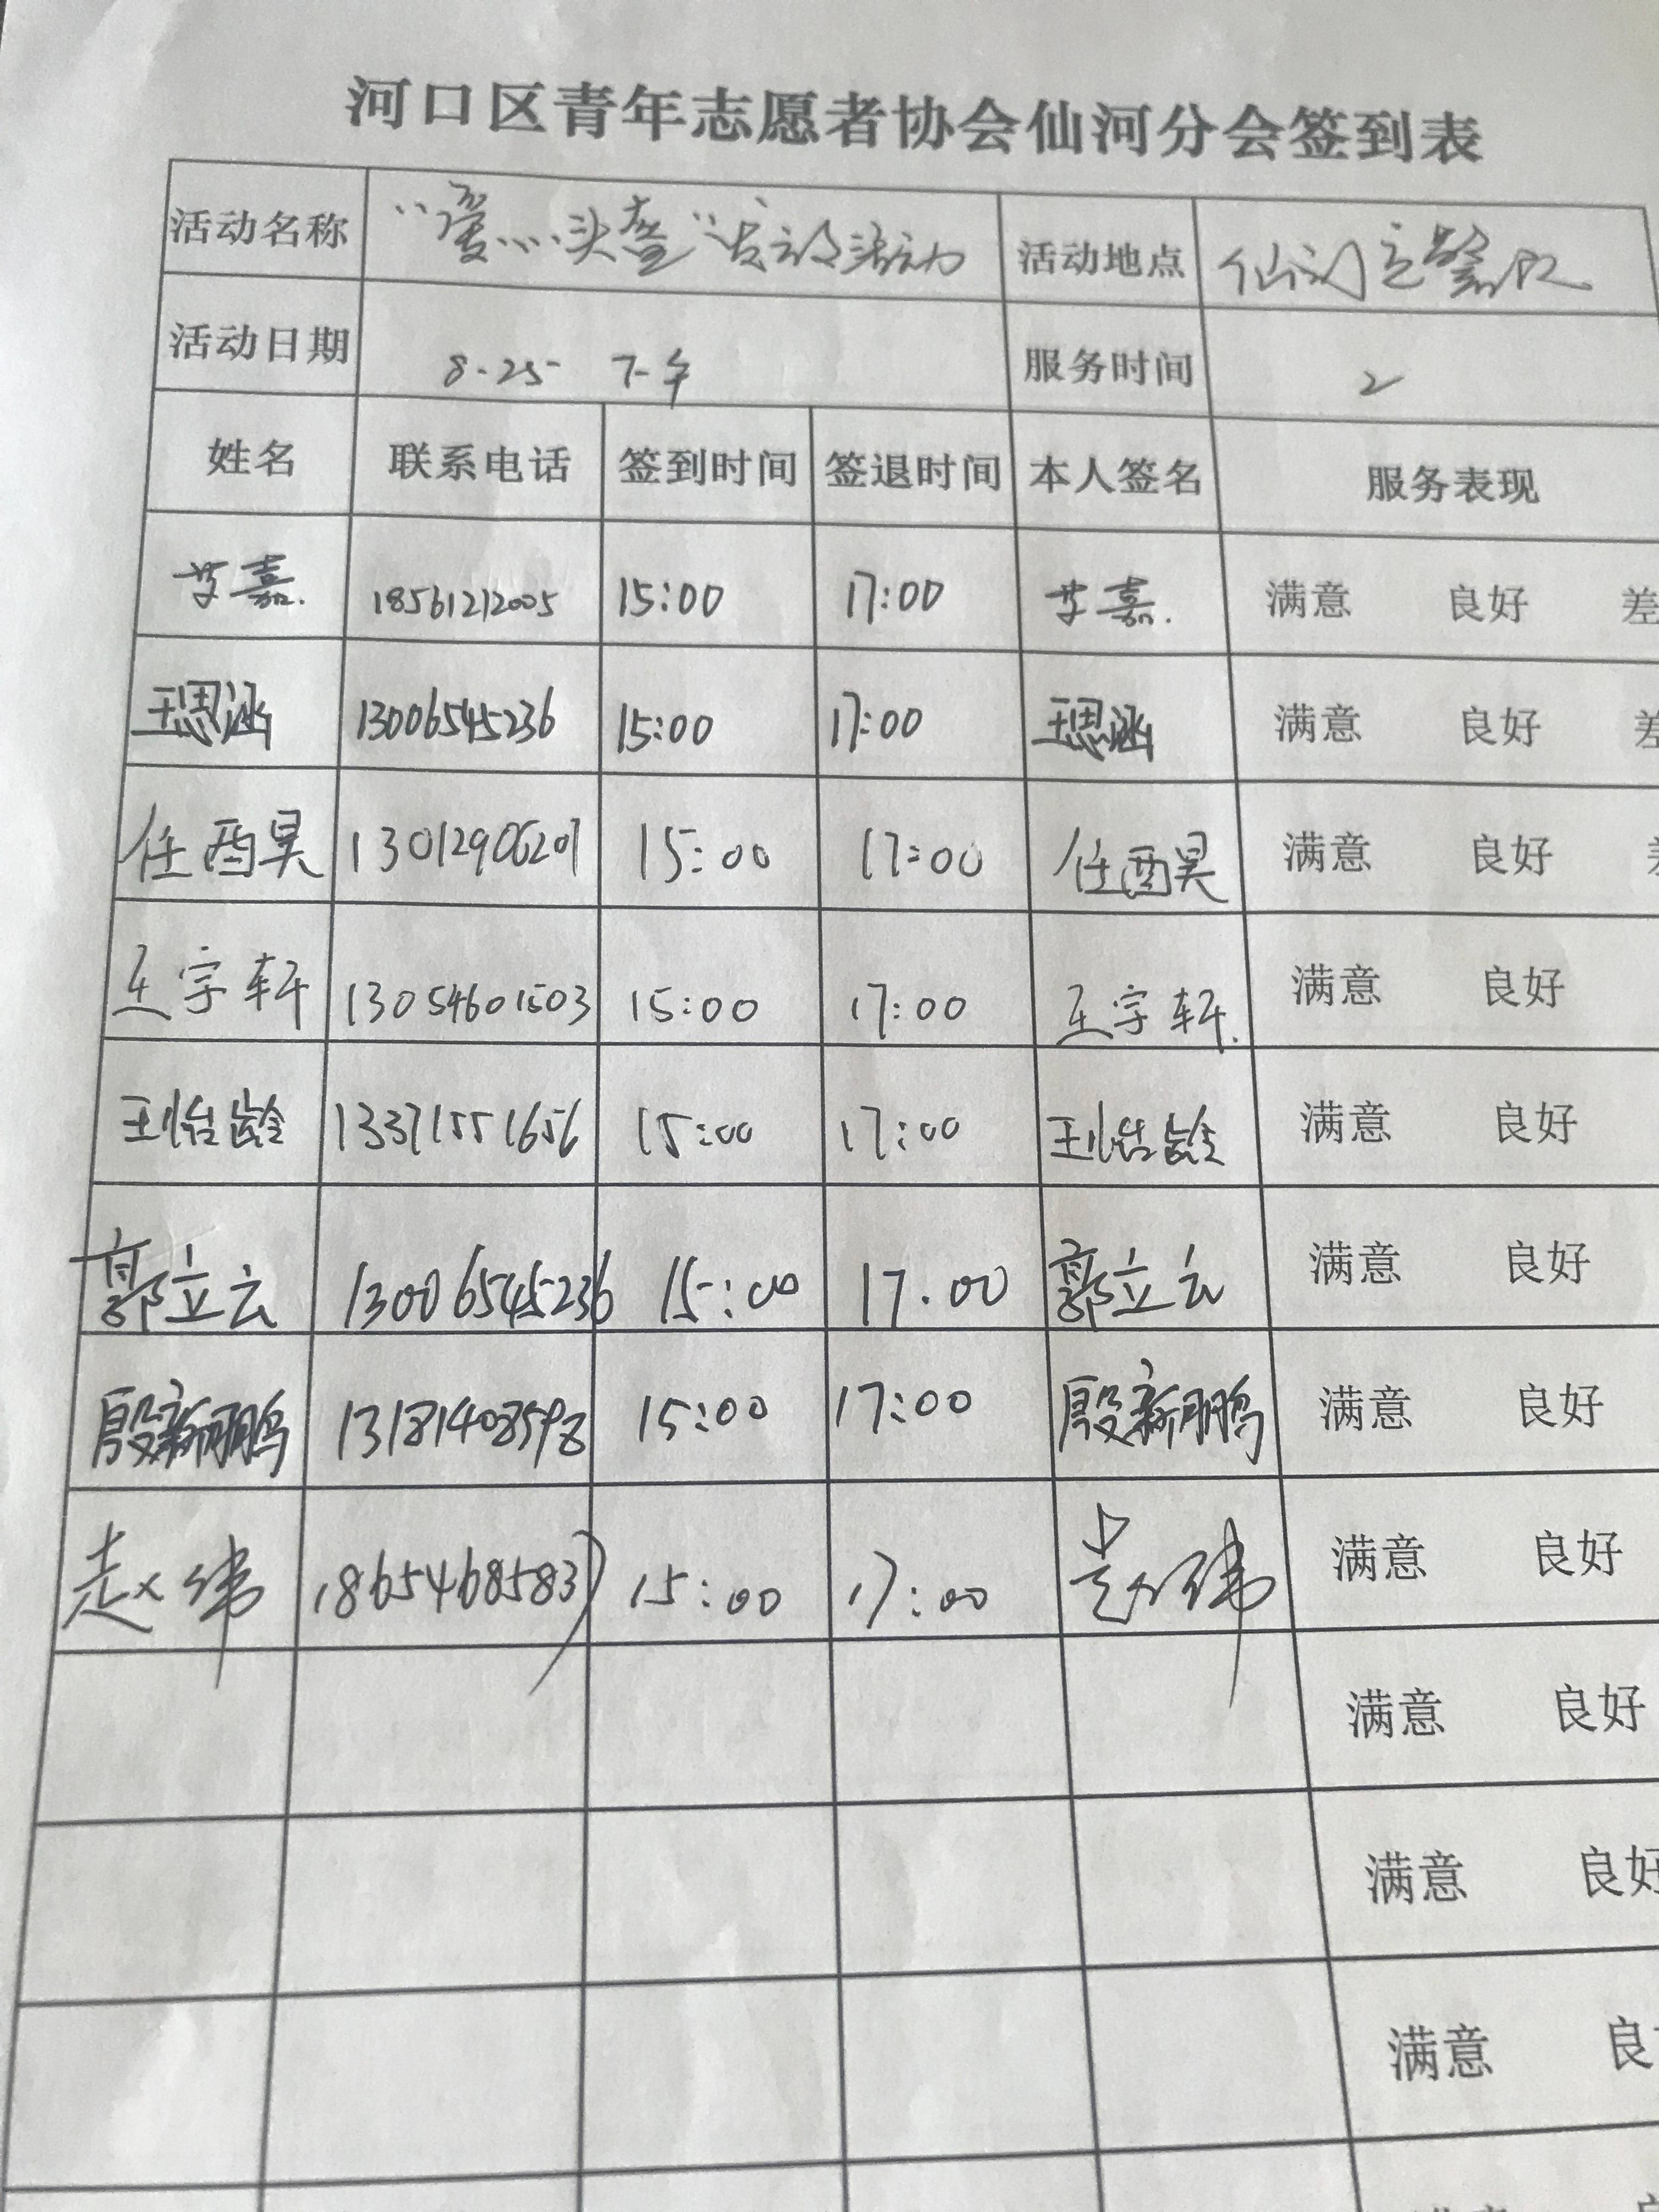 河口区青年志愿者协会仙河分会签到表
活动名称 "爱心头盔"发放活动 活动地点 仙河交警队
活动日期 8.25 下午 服务时间 2
姓名 联系电话 签到时间 签退时间 本人签名 服务表现
艾嘉. 18561212005 15:00 17:00 艾嘉. 满意 良好 差
王思涵 13006545236 15:00 17:00 王思涵 满意 良好 差
任酉昊 13012906201 15:00 17:00 任酉昊 满意 良好
王宇轩 13054601503 15:00 17:00 王宇轩. 满意 良好
王怡龄 13371551656 15:00 17:00 王怡龄 满意 良好
郭立云 13006545236 15:00 17.00 郭立云 满意 良好
殷新鹏 13181408598 15:00 17:00 殷新鹏 满意 良好
赵纬 18654685837 15:00 17:00 赵纬 满意 良好
满意 良好
满意 良好
满意 良